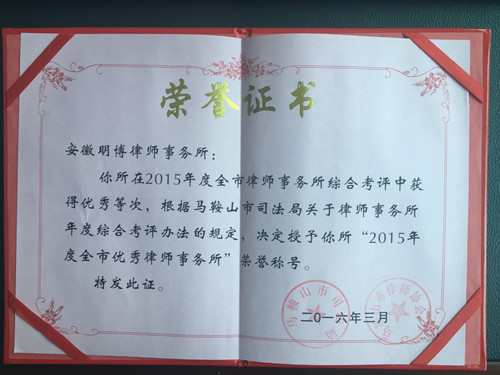 荣誉证书
安徽明博律师事务所：
你所在2015年度全市律师事务所综合考评中获
得优秀等次，根据马鞍山市司法局关于律师事务所
年度综合考评办法的规定，决定授予你所“2015年
度全市优秀律师事务所”荣誉称号。
特发此证。
马鞍山市司法局
马鞍山市律师协会
二〇一六年三月